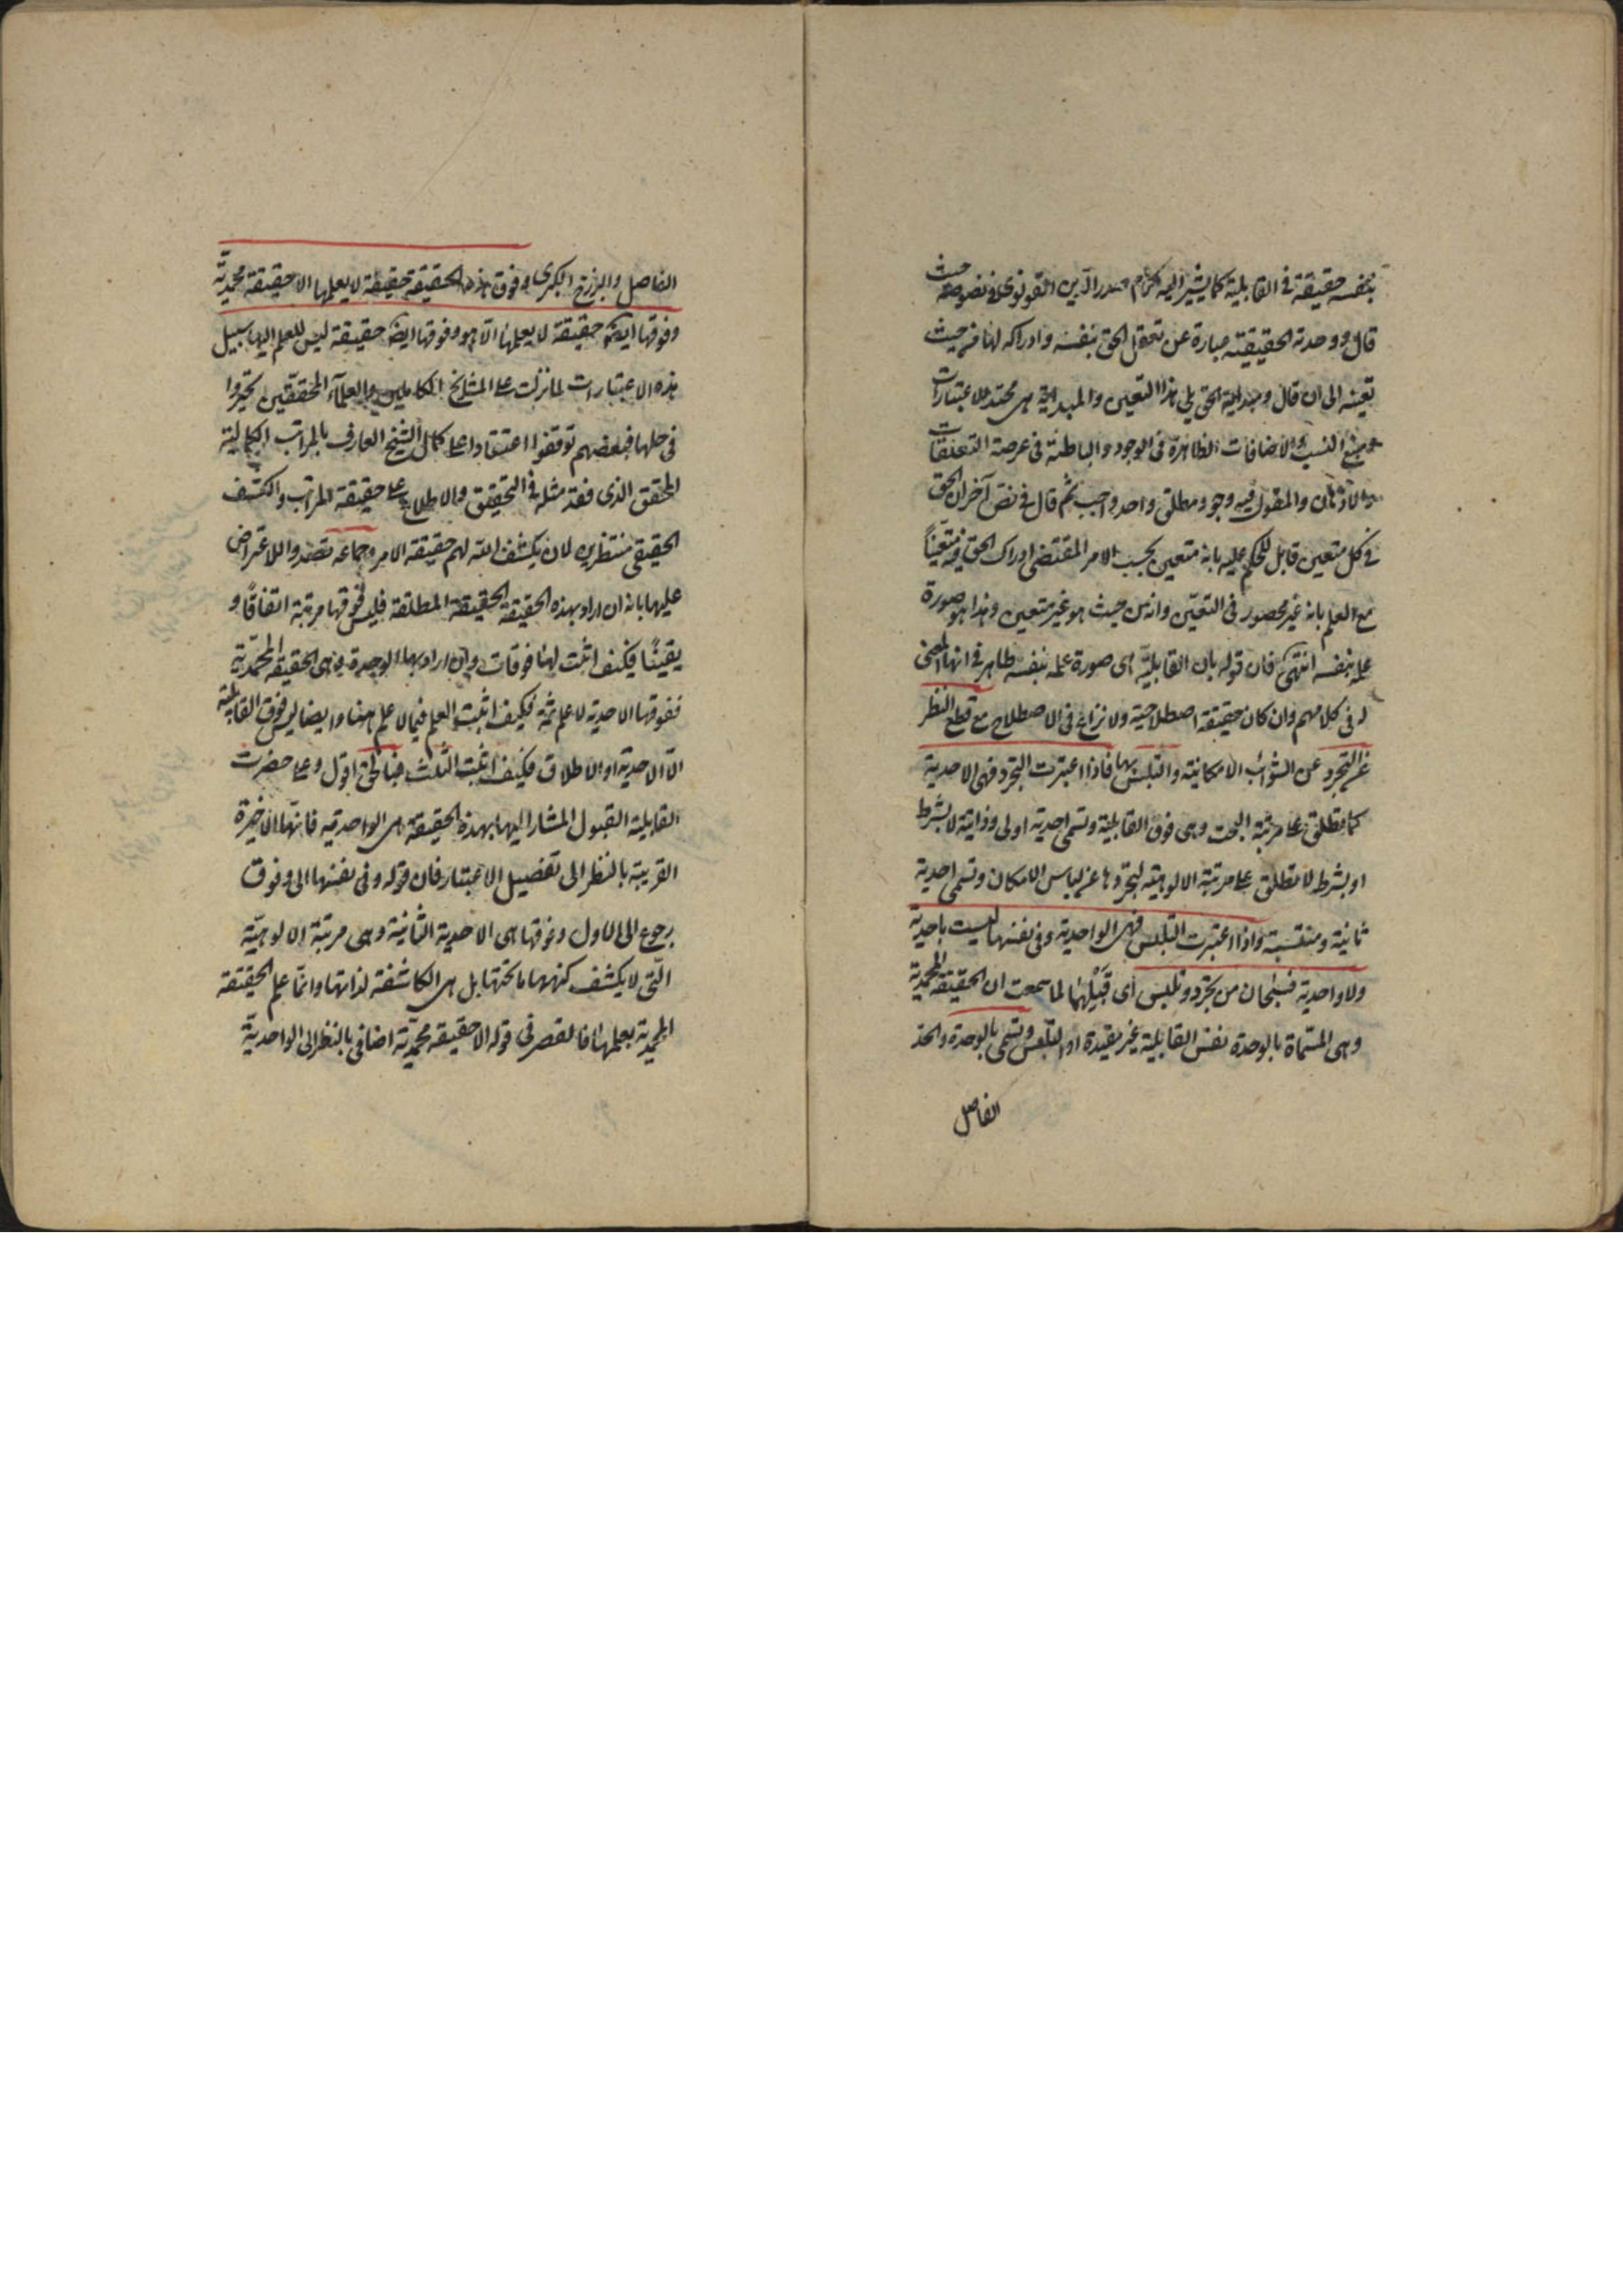 بنفسه حقيقة في القابلية كما يشير اليه كلام صدر الدين القونوي في نصوصه حيث
قال ووحدته الحقيقية عبارة عن تعقل الحق نفسه وادراكه لها من حيث
تعينه الى ان قال ومبدائية الحق يلي هذا التعين والمبدائية هي محتد الاعتبارات
ومنبع النسب والاضافات الظاهرة في الوجود والباطنة في عرصة التعقلات
والاذهان والمقول فيه وجود مطلق واحد واجب ثم قال في نص آخر ان الحق
في كل متعين قابل للحكم عليه بانه متعين بحسب الامر المقتضى ادراك الحق فيه متعينًا
مع العلم بانه غير محصور في التعين وانه من حيث هو غير متعين وهذا هو صورة
علمه بنفسه انتهى فان قوله بان القابلية اى صورة علمه بنفسه ظاهر في انها
له في كلامهم وان كان حقيقة اصطلاحية ولا نزاع في الاصطلاح مع قطع النظر
عن التجرد عن الشوائب الامكانية والتلبس بها فاذا اعتبرت التجرد فهي الاحدية
كما تطلق على مرتبة البحت وهي فوق القابلية وتسمى احدية اولى وذاتية لا بشرط
او بشرط لا تطلق على مرتبة الالوهية لتجردها عن لباس الامكان وتسمى احدية
ثانية ومنتسبة واذا اعتبرت التلبس فهي الواحدية وفي نفسها ليست باحدية
ولا واحدية فسبحان من تجرد وتلبس اى قبيلهما لما سمعت ان الحقيقة المحمدية
وهي المسماة بالوحدة نفس القابلية غير مقيدة او التلبس وتسمى بالوحدة والحد
الفاصل
الفاصل والبرزخ الكبرى وفوق هذه الحقيقة حقيقة لا يعلمها الا حقيقة محمدية
وفوقها ايضا حقيقة لا يعلمها الا هو وفوقها ايضا حقيقة ليس للعلم اليها سبيل
هذه الاعتبارات لما نزلت على المشايخ الكاملين والعلمآء المحققين تحيروا
في حلها فبعضهم توقفوا اعتقادا على كمال الشيخ العارف بالمراتب الكمالية
المحقق الذى فقد مثله في التحقيق والاطلاع على حقيقة المراتب والكشف
الحقيقي منتظرين لان يكشف الله لهم حقيقة الامر وجماعة تصدوا للاعتراض
عليها بانه ان اراد بهذه الحقيقة الحقيقة المطلقة فليس فوقها مرتبة اتفاقًا و
يقينًا فكيف اثبت لها فوقات وان اراد بها الوحدة هي الحقيقة المحمدية
ففوقها الاحدية لا علم ثمة فكيف اثبت العلم فيما لا علم هنا وايضا ليس فوق القابلية
الا الاحدية او الاطلاق فكيف اثبت الثلث فبالحق اقول وعلى حضرت
القابلية القبول المشار اليها بهذه الحقيقة هي الواحدية فانها الاخيرة
القريبة بالنظر الى تفصيل الاعتبار فان قوله وفي نفسها الى وفوق
رجوع الى الاول وفوقها هي الاحدية الثانية وهي مرتبة الالوهية
التى لا يكشف كنهها ما تحتها بل هي الكاشفة لذاتها وانما علم الحقيقة
المحمدية بعلمها فالقصر في قوله الا حقيقة محمدية اضافي بالنظر الى الواحدية